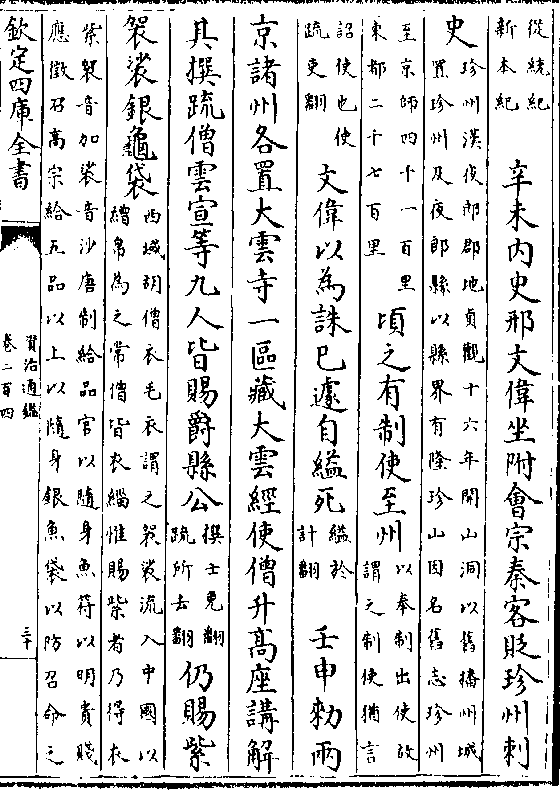 從統紀
新本紀
辛未内史邢文偉坐附會宗秦客貶珍州刺
史
珍州漢夜郎郡地貞觀十六年開山洞以舊播州城
置珍州及夜郎縣以縣界有隆珍山因名舊志珍州
至京師四千一百里
東都二千七百里
頃之有制使至州
以奉制出使故
謂之制使猶言
詔使也使
疏吏翻
文偉以為誅已遽自縊死
縊於
計翻
壬申勅兩
京諸州各置大雲寺一區藏大雲經使僧升高座講解
其撰疏僧雲宣等九人皆賜爵縣公
撰士免翻
疏所去翻
仍賜紫
袈裟銀龜袋
西域胡僧衣毛衣謂之袈裟流入中國以
繒帛為之常僧皆衣緇惟賜紫者乃得衣
紫袈音加裟音沙唐制給品官以隨身魚符以明貴賤
應徵召高宗給五品以上以隨身銀魚袋以防召命之
欽定四庫全書
資治通鑑
卷二百四
三十